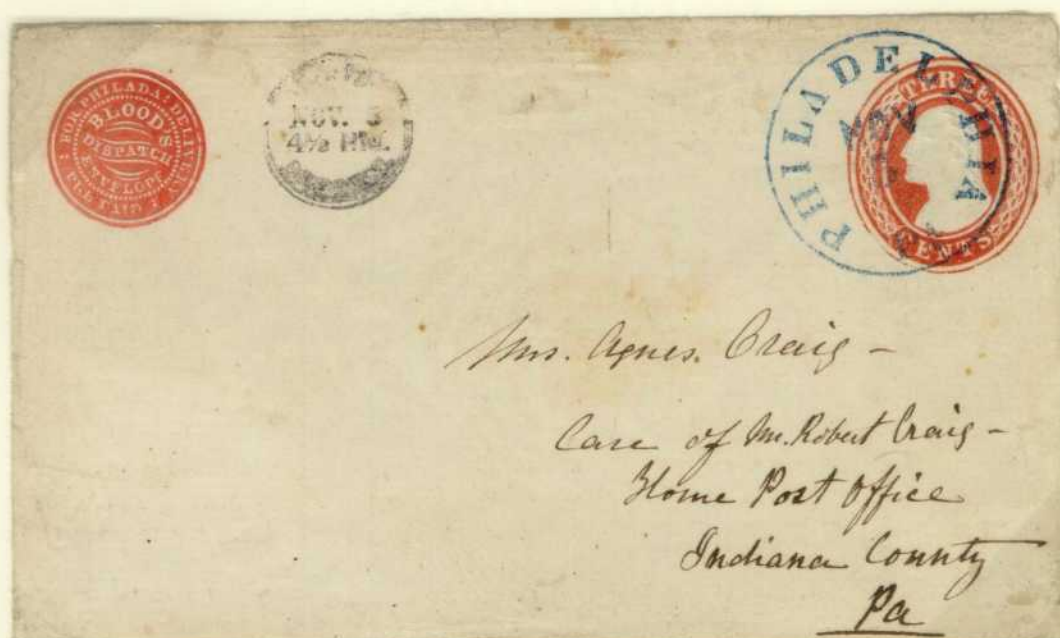 FOR PHILADA: DELIVERY
BLOOD'S
DISPATCH
ENVELOPE
FEE PAID
NOV. 3
4½ HW.
PHILADELPHIA
NOV
THREE
CENTS
Mrs. Agnes. Craig -
Care of Mr. Robert Craig -
Home Post Office
Indiana County
Pa